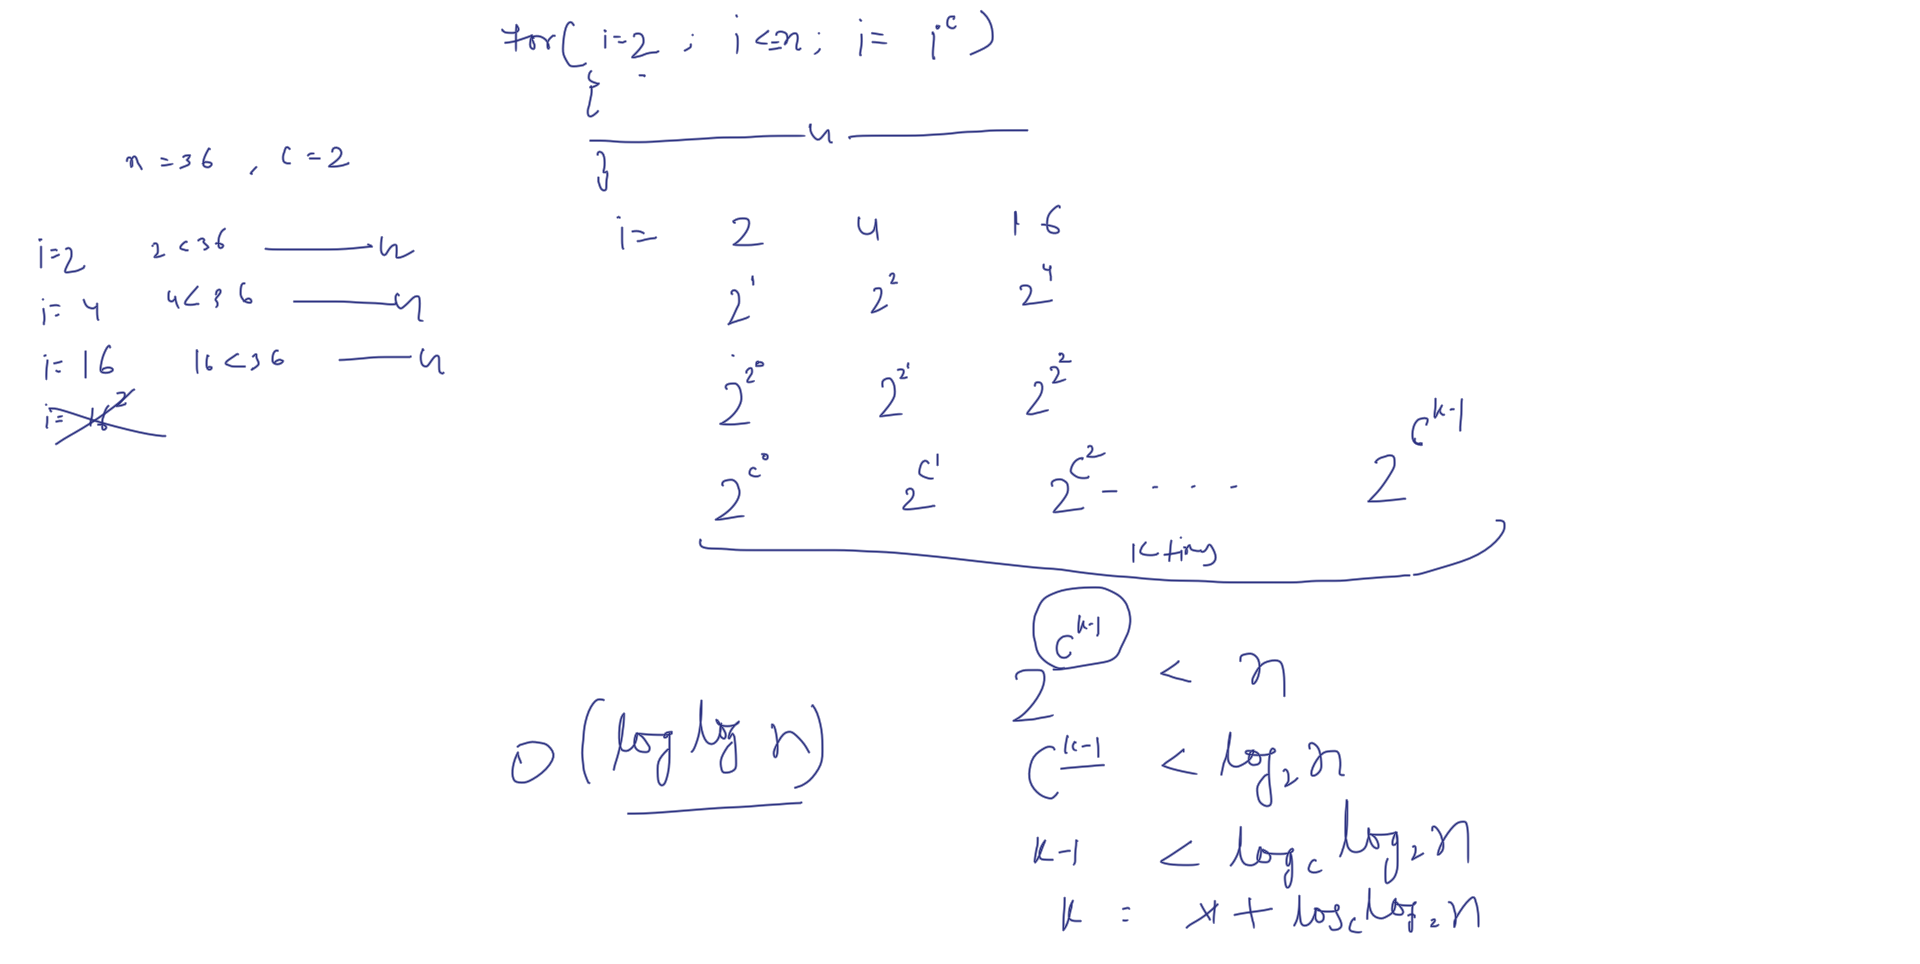 for( i=2 ; i<=n ; i= i^c )
{
}
n = 36 , c = 2
i=2 2 < 36
i= 4 4 < 36
i= 16 16 < 36
i= 16^2
i= 2 4 16
2^1 2^2 2^4
2^2^0 2^2^1 2^2^2
2^c^0 2^c^1 2^c^2 - . . . . 2^c^k-1
k times
2^c^k-1 < n
c^k-1 < log_2 n
k-1 < log_c log_2 n
k = 1 + log_c log_2 n
O ( log log n )